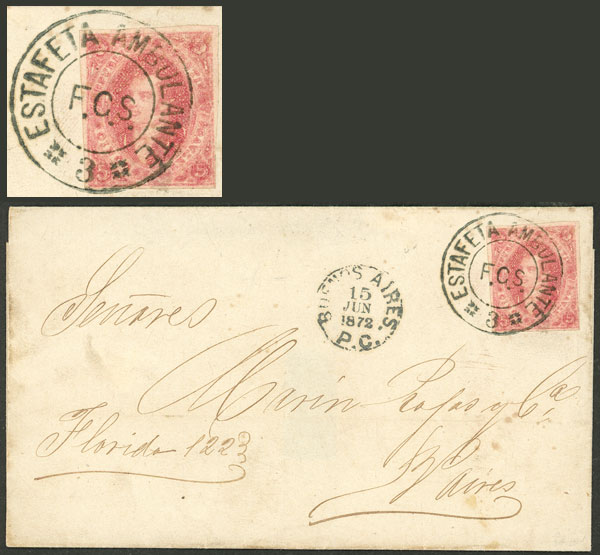 ESTAFETA AMBULANTE
F.C.S.
3
ESTAFETA AMBULANTE
F.C.S.
3
BUENOS AIRES.
15
JUN
1872
P.C.
Señores
Marin Rojas y Ca
Florida 122
Aires